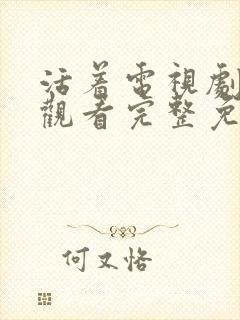 活着電視劇
觀看完整免
何又恪